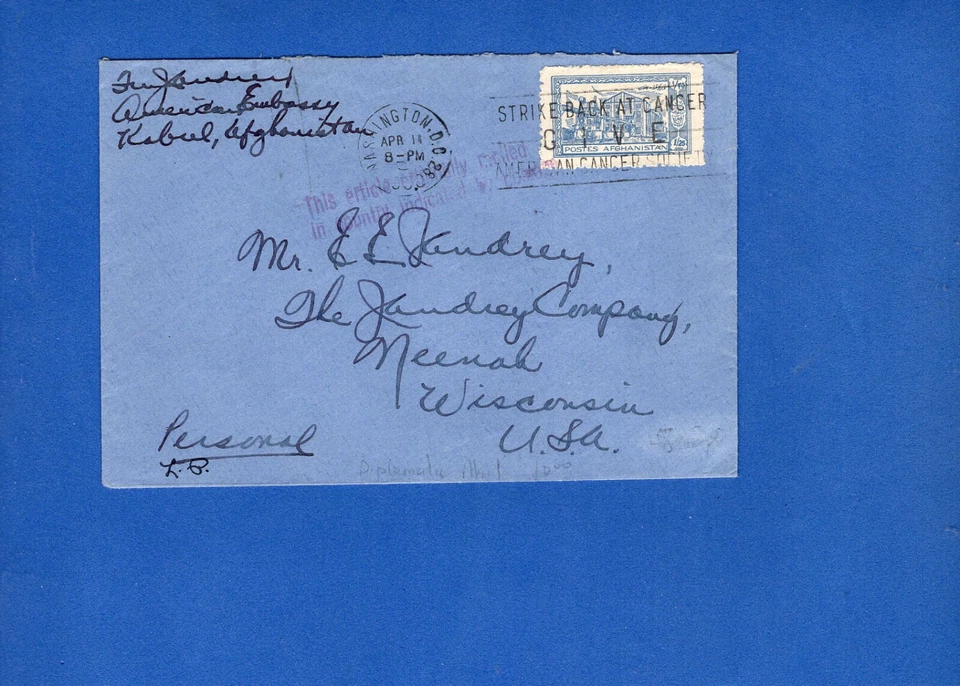 Jandrey
American Embassy
Kabul, Afghanistan
WASHINGTON, D.C.
APR 14
8-PM
STRIKE BACK AT CANCER
GIVE
AMERICAN CANCER SOCIE
POSTES AFGHANISTAN
1/25
This article originally mailed
in country indicated by
Mr. E E Jandrey,
The Jandrey Company,
Neenah
Wisconsin
U.S.A.
Personal
L.P.
Diplomatic Mail 10⁰⁰